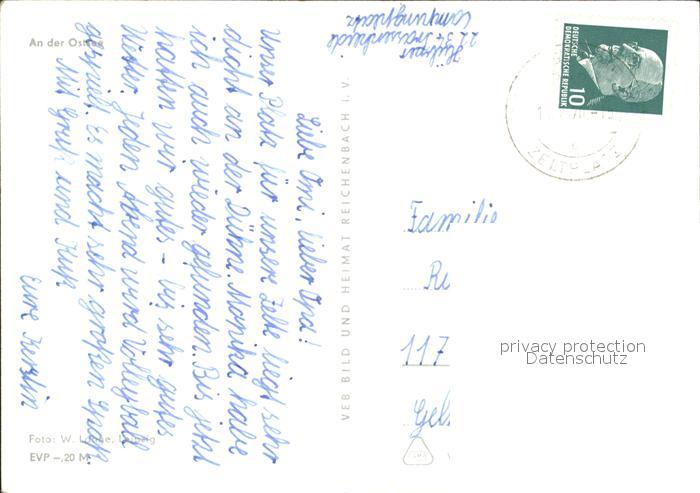 An der Ostsee
Liebe Omi, lieber Opa!
unser Platz für unsere Zelte liegt sehr
dicht an der Dühne. Monika habe
ich auch wieder gefunden. Bis jetzt
hatten wir gutes – bis sehr gutes
Wetter. Jeden Abend wird Volleyball
gespielt. Es macht sehr großen Spaß.
Mit Gruß und Kuß
Eure Kerstin
Foto: W. Leipzig
EVP –,20 M
VEB BILD UND HEIMAT REICHENBACH I. V.
2234
Campingplatz
DEUTSCHE
DEMOKRATISCHE REPUBLIK
10
ZELTPLATZ
Familie
117
privacy protection
Datenschutz